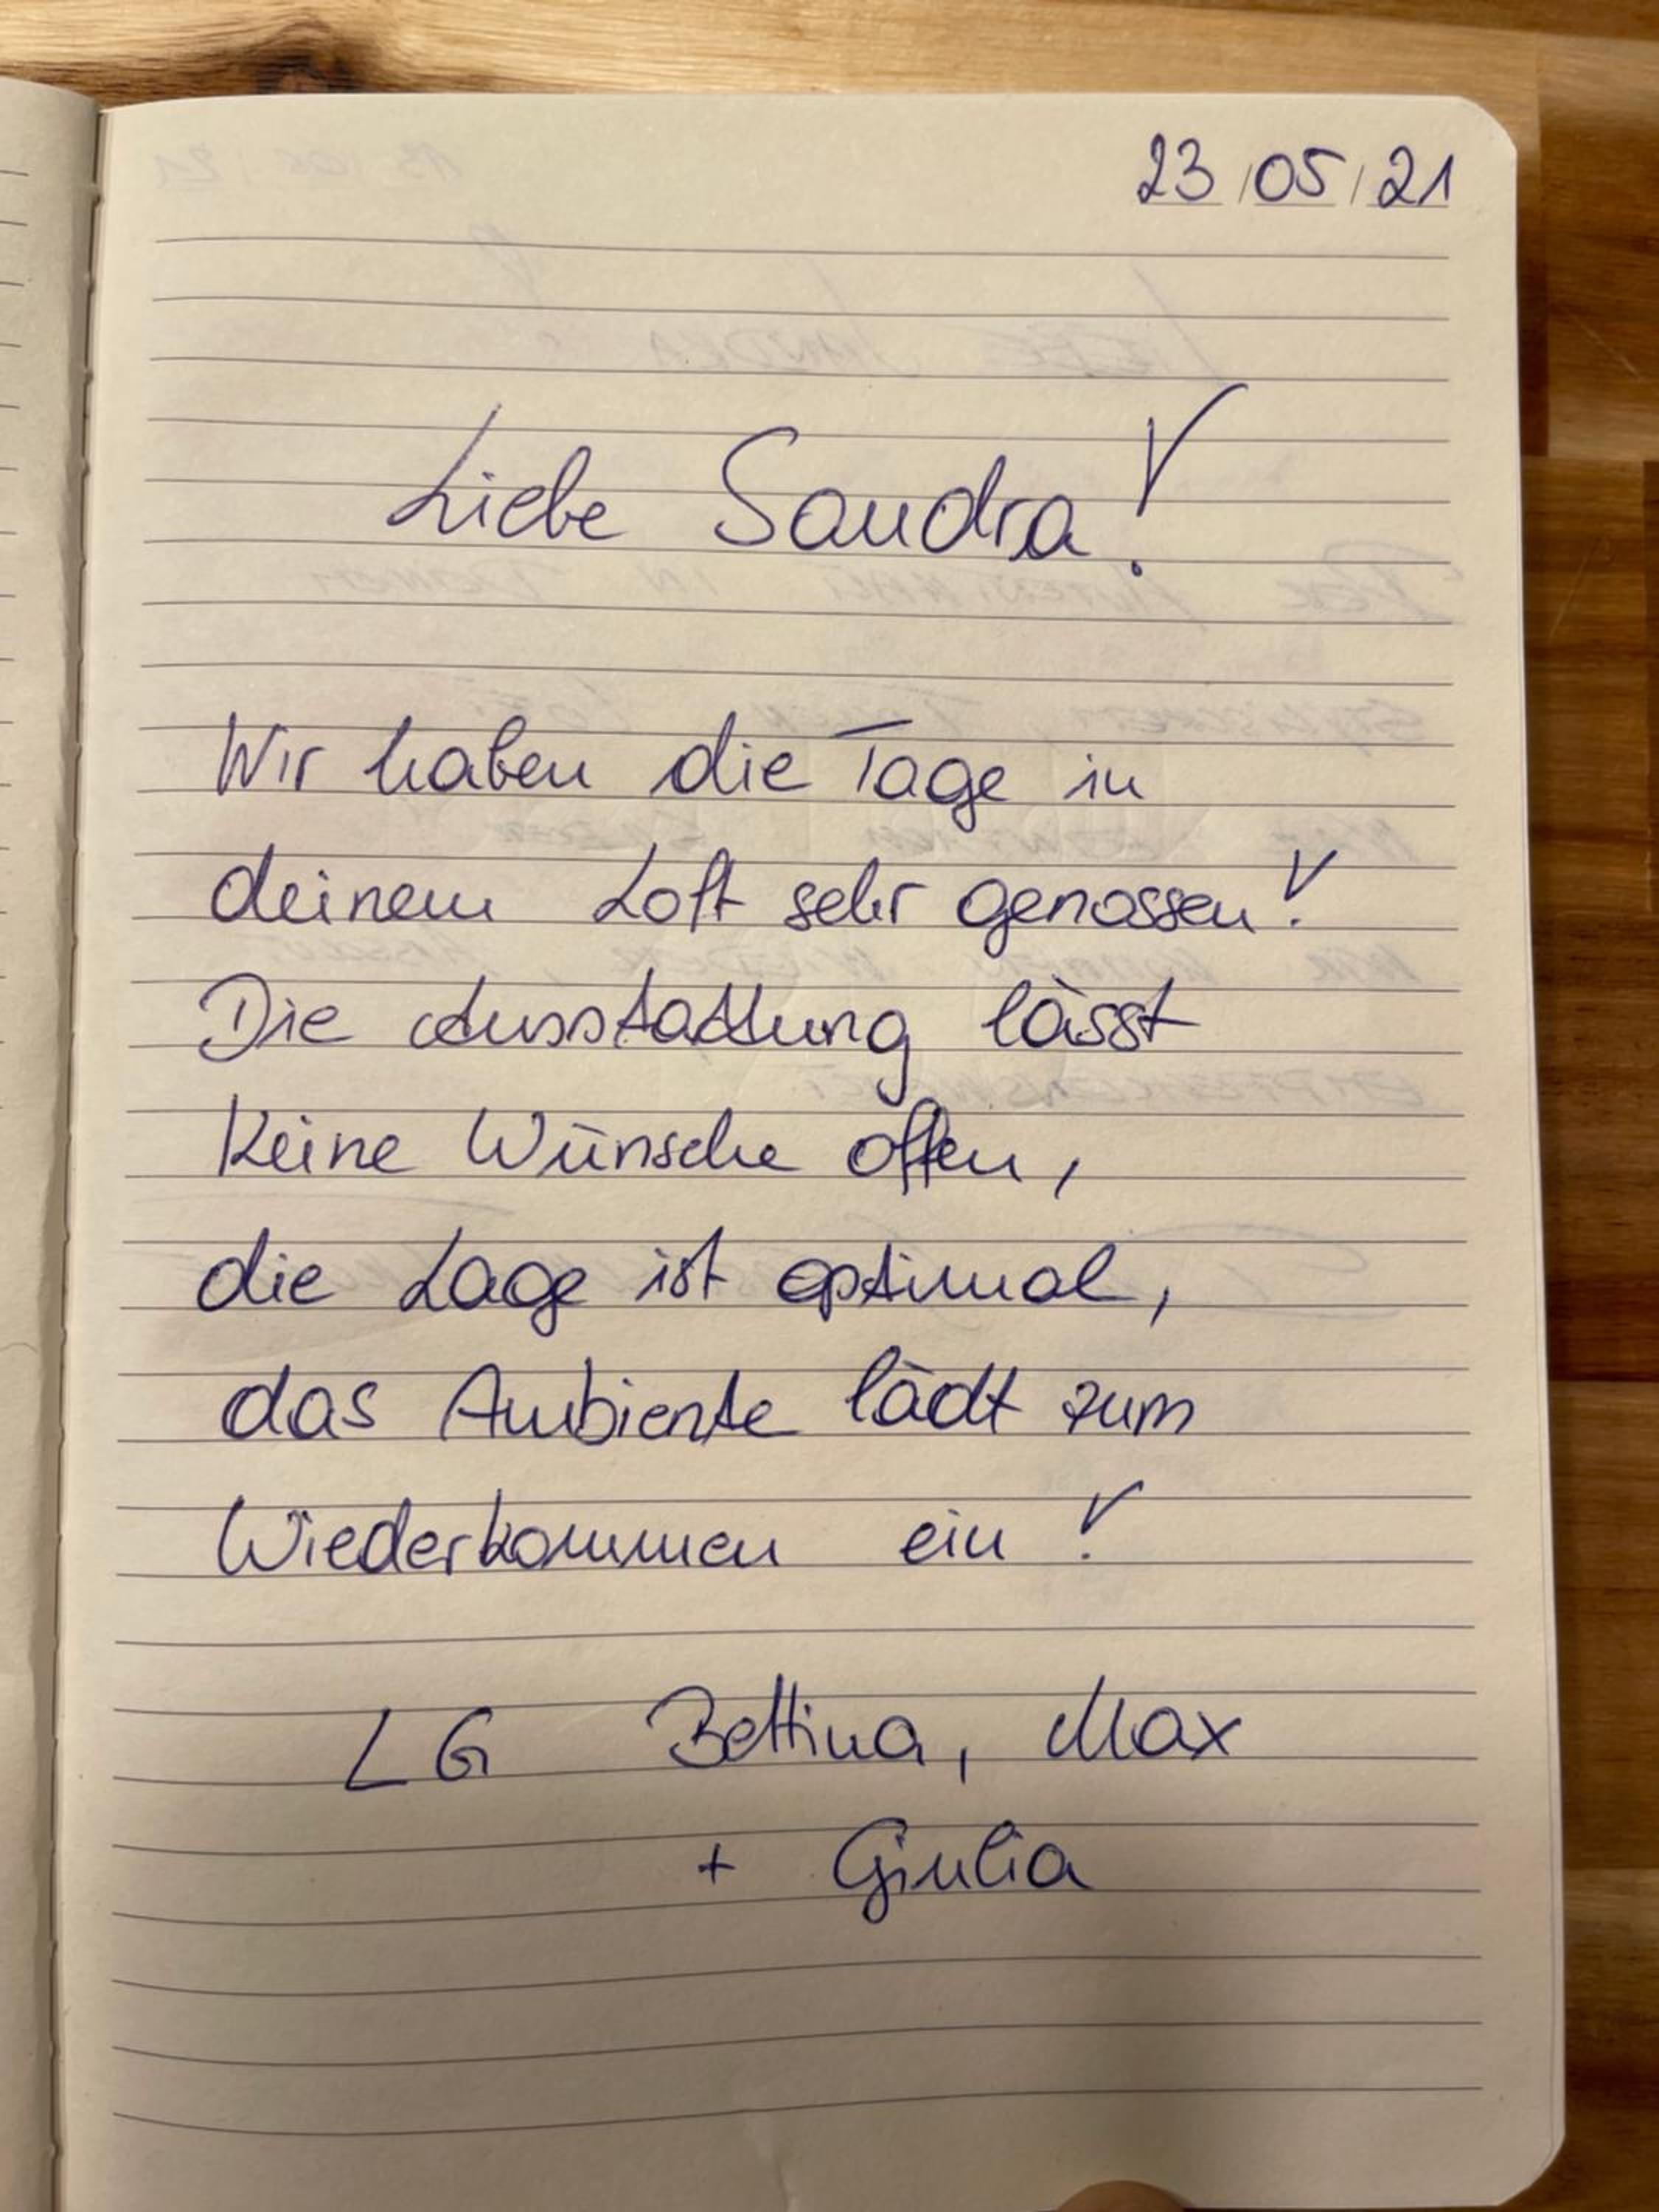 23/05/21
Liebe Sandra!
Wir haben die Tage in
deinem Loft sehr genossen!
Die Ausstattung lässt
keine Wünsche offen,
die Lage ist optimal,
das Ambiente lädt zum
Wiederkommen ein!
LG Bettina, Max
+ Giulia